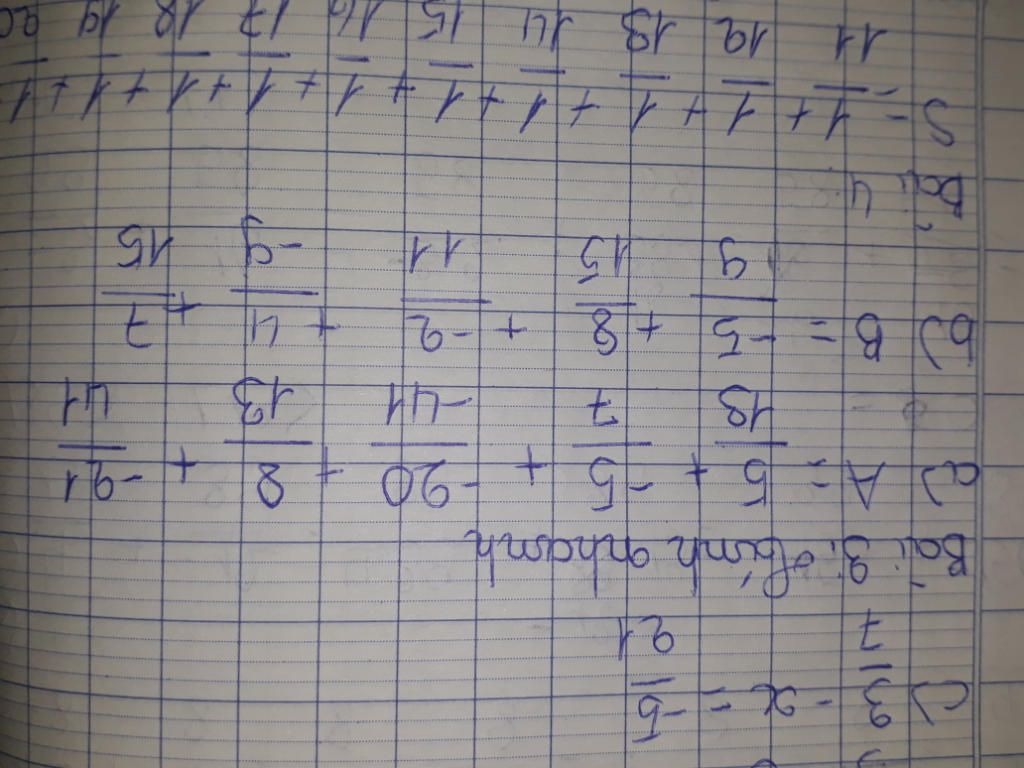 c) 3/7 - x = -5/21
Bài 3: Tính nhanh
a) A = 5/13 + -5/7 + -20/-41 + 8/13 + -21/41
b) B = -5/9 + 8/15 + -2/11 + 4/-9 + 7/15
Bài 4
S = 1/11 + 1/12 + 1/13 + 1/14 + 1/15 + 1/16 + 1/17 + 1/18 + 1/19 + 1/20